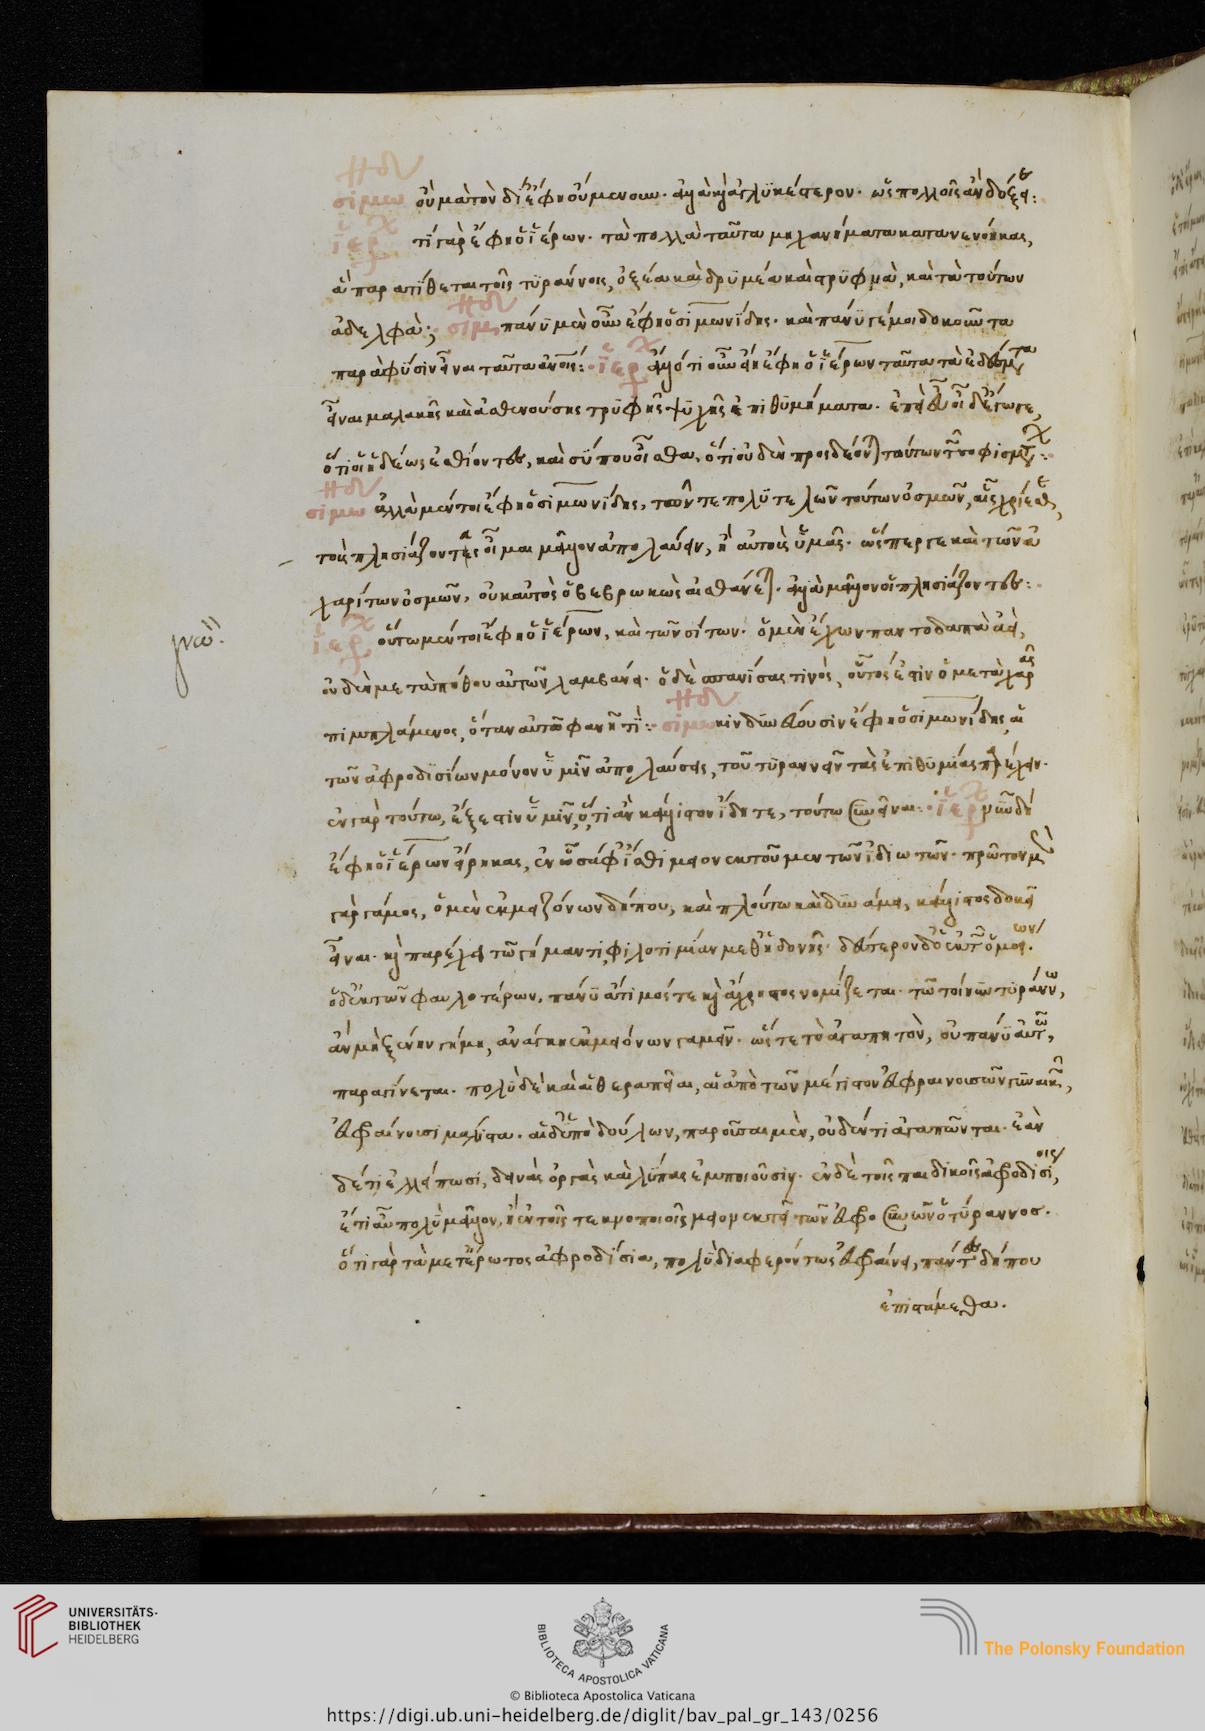 σιμω οὐ μὰ τὸν δί ἔφη ὁ σιμων. ἀλλὰ καὶ ἀγλυκέστερον. ὡς πολλοῖς ἂν δόξειε:
ἱερ τί γὰρ ἔφη ὁ ἱέρων. τὰ πολλὰ ταῦτα μηχανήματα κατανενόηκας,
ἃ παρατίθεται τοῖς τυράννοις, ὀξέα καὶ δριμέα καὶ στρυφνὰ, καὶ τὰ τούτων
ἀδελφὰ; σιμ πάνυ μὲν οὖν ἔφη ὁ σιμωνίδης. καὶ πάνυ γέ μοι δοκοῦντα
παρὰ φύσιν εἶναι ταῦτα ἀνοις: ἱερ ἄλλό τι οὖν οἴει ἔφη ὁ ἱέρων ταῦτα τὰ ἐδέσματα
εἶναι μαλακῆς καὶ ἀσθενούσης τρυφῆς ψυχῆς ἐπιθυμήματα. ἐπεὶ εὖ οἶδ ἔγωγε,
ὅτι οἱ ἡδέως ἐσθίοντες, καὶ σύ που οἶσθα, ὅτι οὐδὲν προσδέονται τούτων τῶν σοφισμάτων:
σιμω ἀλλὰ μέντοι ἔφη ὁ σιμωνίδης, τῶν τε πολυτελῶν τούτων ὀσμῶν, αἷς χρίεσθε,
τοὺς πλησιάζοντας οἶμαι μᾶλλον ἀπολαύειν, ἢ αὐτοὺς ὑμᾶς. ὥσπερ γε καὶ τῶν ἀ
χαρίτων ὀσμῶν, οὐκ αὐτὸς ὁ βεβρωκὼς αἰσθάνεται. ἀλλὰ μᾶλλον οἱ πλησιάζοντες:
ἱερ οὕτω μέντοι ἔφη ὁ ἱέρων, καὶ τῶν σίτων. ὁ μὲν ἔχων παντοδαπὰ ἀεὶ,
οὐδὲν μετὰ πόθου αὐτῶν λαμβάνει. ὁ δὲ σπανίσας τινὸς, οὗτός ἐστιν ὁ μετὰ χαρᾶς
πιμπλάμενος, ὅταν αὐτῷ φανῇ τὶ: σιμω κινδυνεύουσιν ἔφη ὁ σιμωνίδης, αἱ
τῶν ἀφροδισίων μόνον ὑμῖν ἀπολαύσεις, τοῦ τυραννεῖν τὰς ἐπιθυμίας παρέχειν.
ἐν γὰρ τούτω, ἔξεστιν ὑμῖν, ὅ,τι ἂν κάλλιστον ἴδητε, τούτω συνεῖναι: ἱερ νῦν δὴ
ἔφη ὁ ἱέρων εἴρηκας, ἐν ᾧ σάφ ἴσθι μειονεκτοῦμεν τῶν ἰδιωτῶν. πρῶτον μὲν
γὰρ γάμος, ὁ μὲν ἐκ μειζόνων δήπου, καὶ πλούτω καὶ δυνάμει, κάλλιστος δοκεῖ
εἶναι. καὶ παρέχει τῷ γήμαντι φιλοτιμίαν μεθ ἡδονῆς. δεύτερον δ ὁ ἐκ τῶν ὁμοίων.
ὁ δ ἐκ τῶν φαυλοτέρων, πάνυ ἄτιμός τε καὶ ἄχρηστος νομίζεται. τῷ τοίνυν τυράννω,
ἂν μὴ ξένην γήμη, ἀνάγκη ἐκ μειόνων γαμεῖν. ὥστε τὸ ἀγαπητὸν, οὐ πάνυ αὐτῶ,
παραγίνεται. πολὺ δὲ καὶ αἱ θεραπεῖαι, αἱ ἀπὸ τῶν μέγιστον φρονουσῶν γυναικῶν,
εὐφραίνουσι μάλιστα. αἱ δ ὑπὸ δούλων, παροῦσαι μὲν, οὐδέν τι ἀγαπῶνται. ἐὰν
δέ τι ἐλλείπωσι, δεινὰς ὀργὰς καὶ λύπας ἐμποιοῦσιν. ἐν δὲ τοῖς παιδικοῖς ἀφροδισίοις,
ἔτι αὖ πολὺ μᾶλλον, ἢ ἐν τοῖς τεκνοποιοῖς μειονεκτεῖ τῶν εὐφροσυνῶν ὁ τύραννος.
ὅτι γὰρ τὰ μετ ἔρωτος ἀφροδίσια, πολὺ διαφερόντως εὐφραίνει, πάντες δήπου
ἐπιστάμεθα.
UNIVERSITÄTS-
BIBLIOTHEK
HEIDELBERG
BIBLIOTECA APOSTOLICA VATICANA
The Polonsky Foundation
© Biblioteca Apostolica Vaticana
https://digi.ub.uni-heidelberg.de/diglit/bav_pal_gr_143/0256